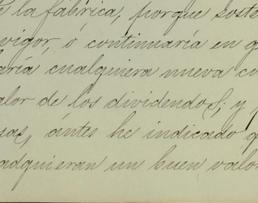 e la fábrica, porque soste
vigor, ó continuaría en g
aría cualquiera nueva co
alor de los dividendos, y
sas, ántes he indicado q
adquieran un buen valo